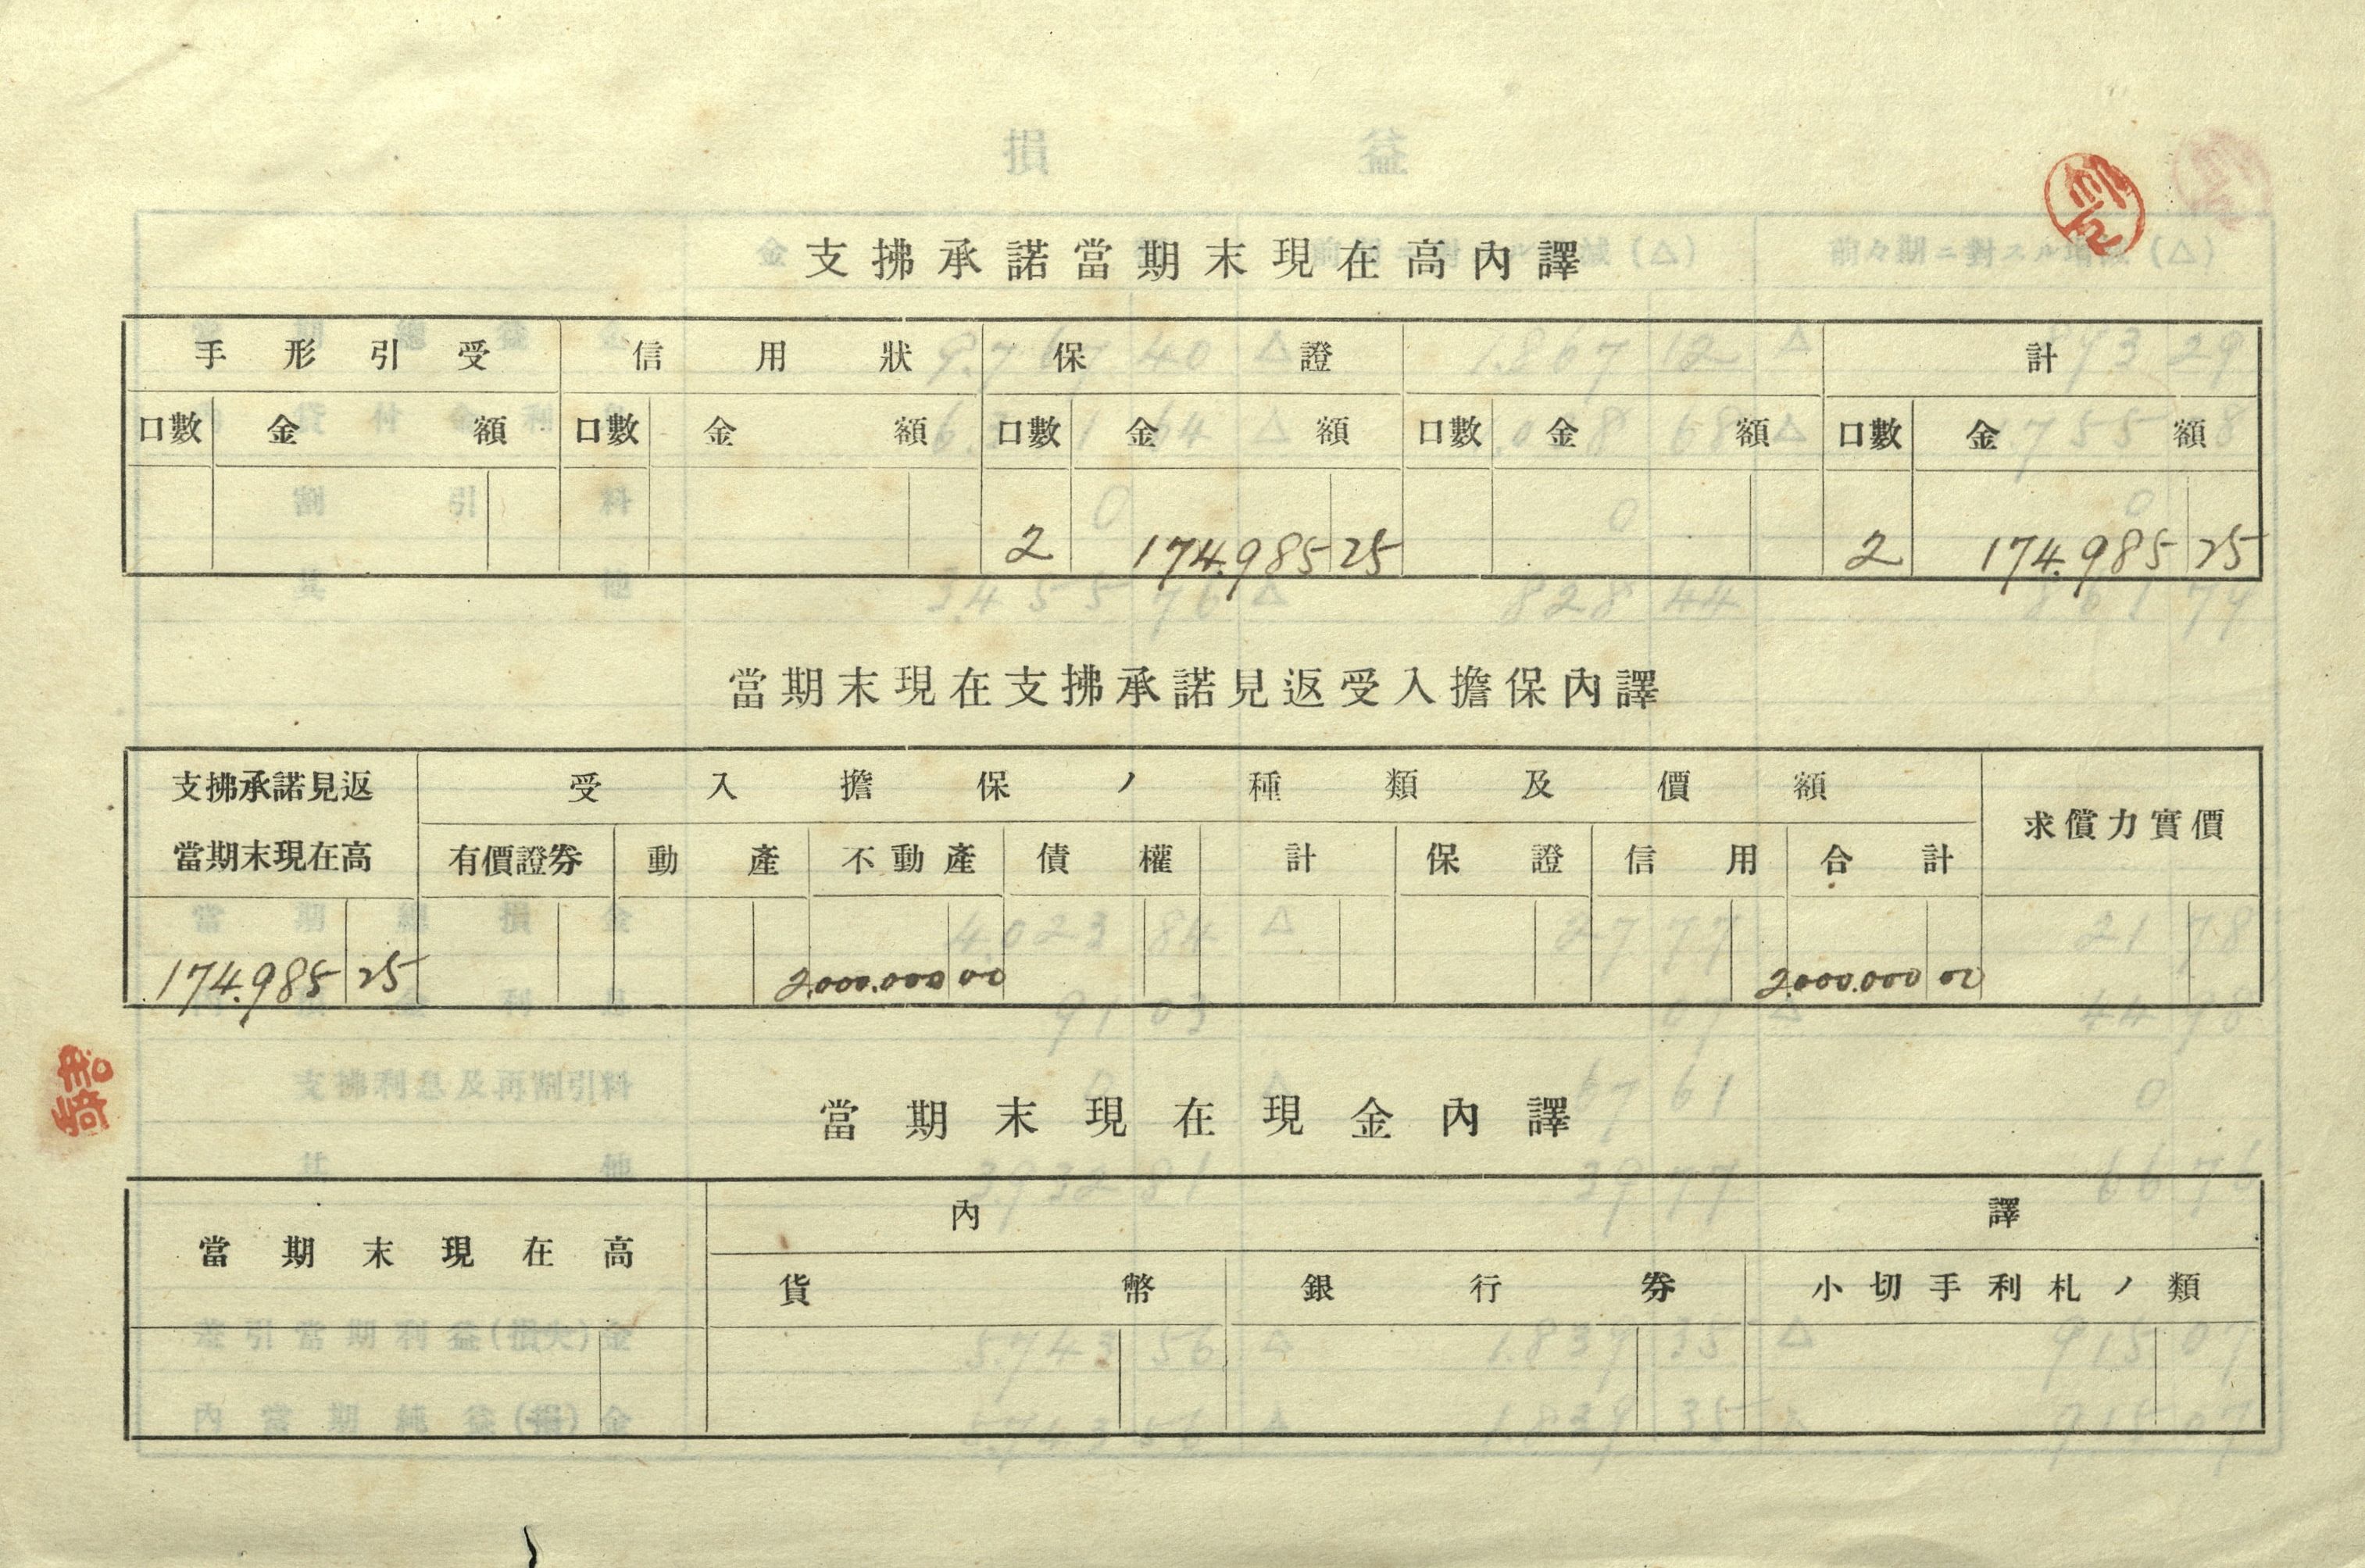 支拂承諾當期末現在高內譯
手形引受 信用狀 保證 計
口數 金額 口數 金額 口數 金額 口數 金額 口數 金額
2 174.985 25 2 174.985 25
當期末現在支拂承諾見返受入擔保內譯
支拂承諾見返 受入擔保ノ種類及價額 求償力實價
當期末現在高 有價證券 動產 不動產 債權 計 保證 信用 合計
174.985 25 2.000.000 00 2.000.000 00
當期末現在現金內譯
當期末現在高 內譯
貨幣 銀行券 小切手利札ノ類